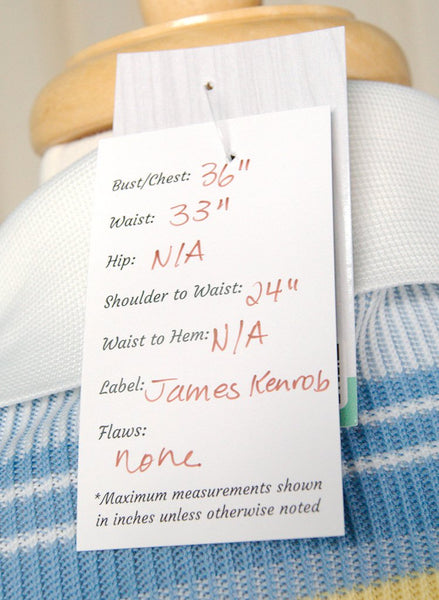 Bust/Chest: 36"
Waist: 33"
Hip: N/A
Shoulder to Waist: 24"
Waist to Hem: N/A
Label: James Kenrob
Flaws:
none
*Maximum measurements shown
in inches unless otherwise noted